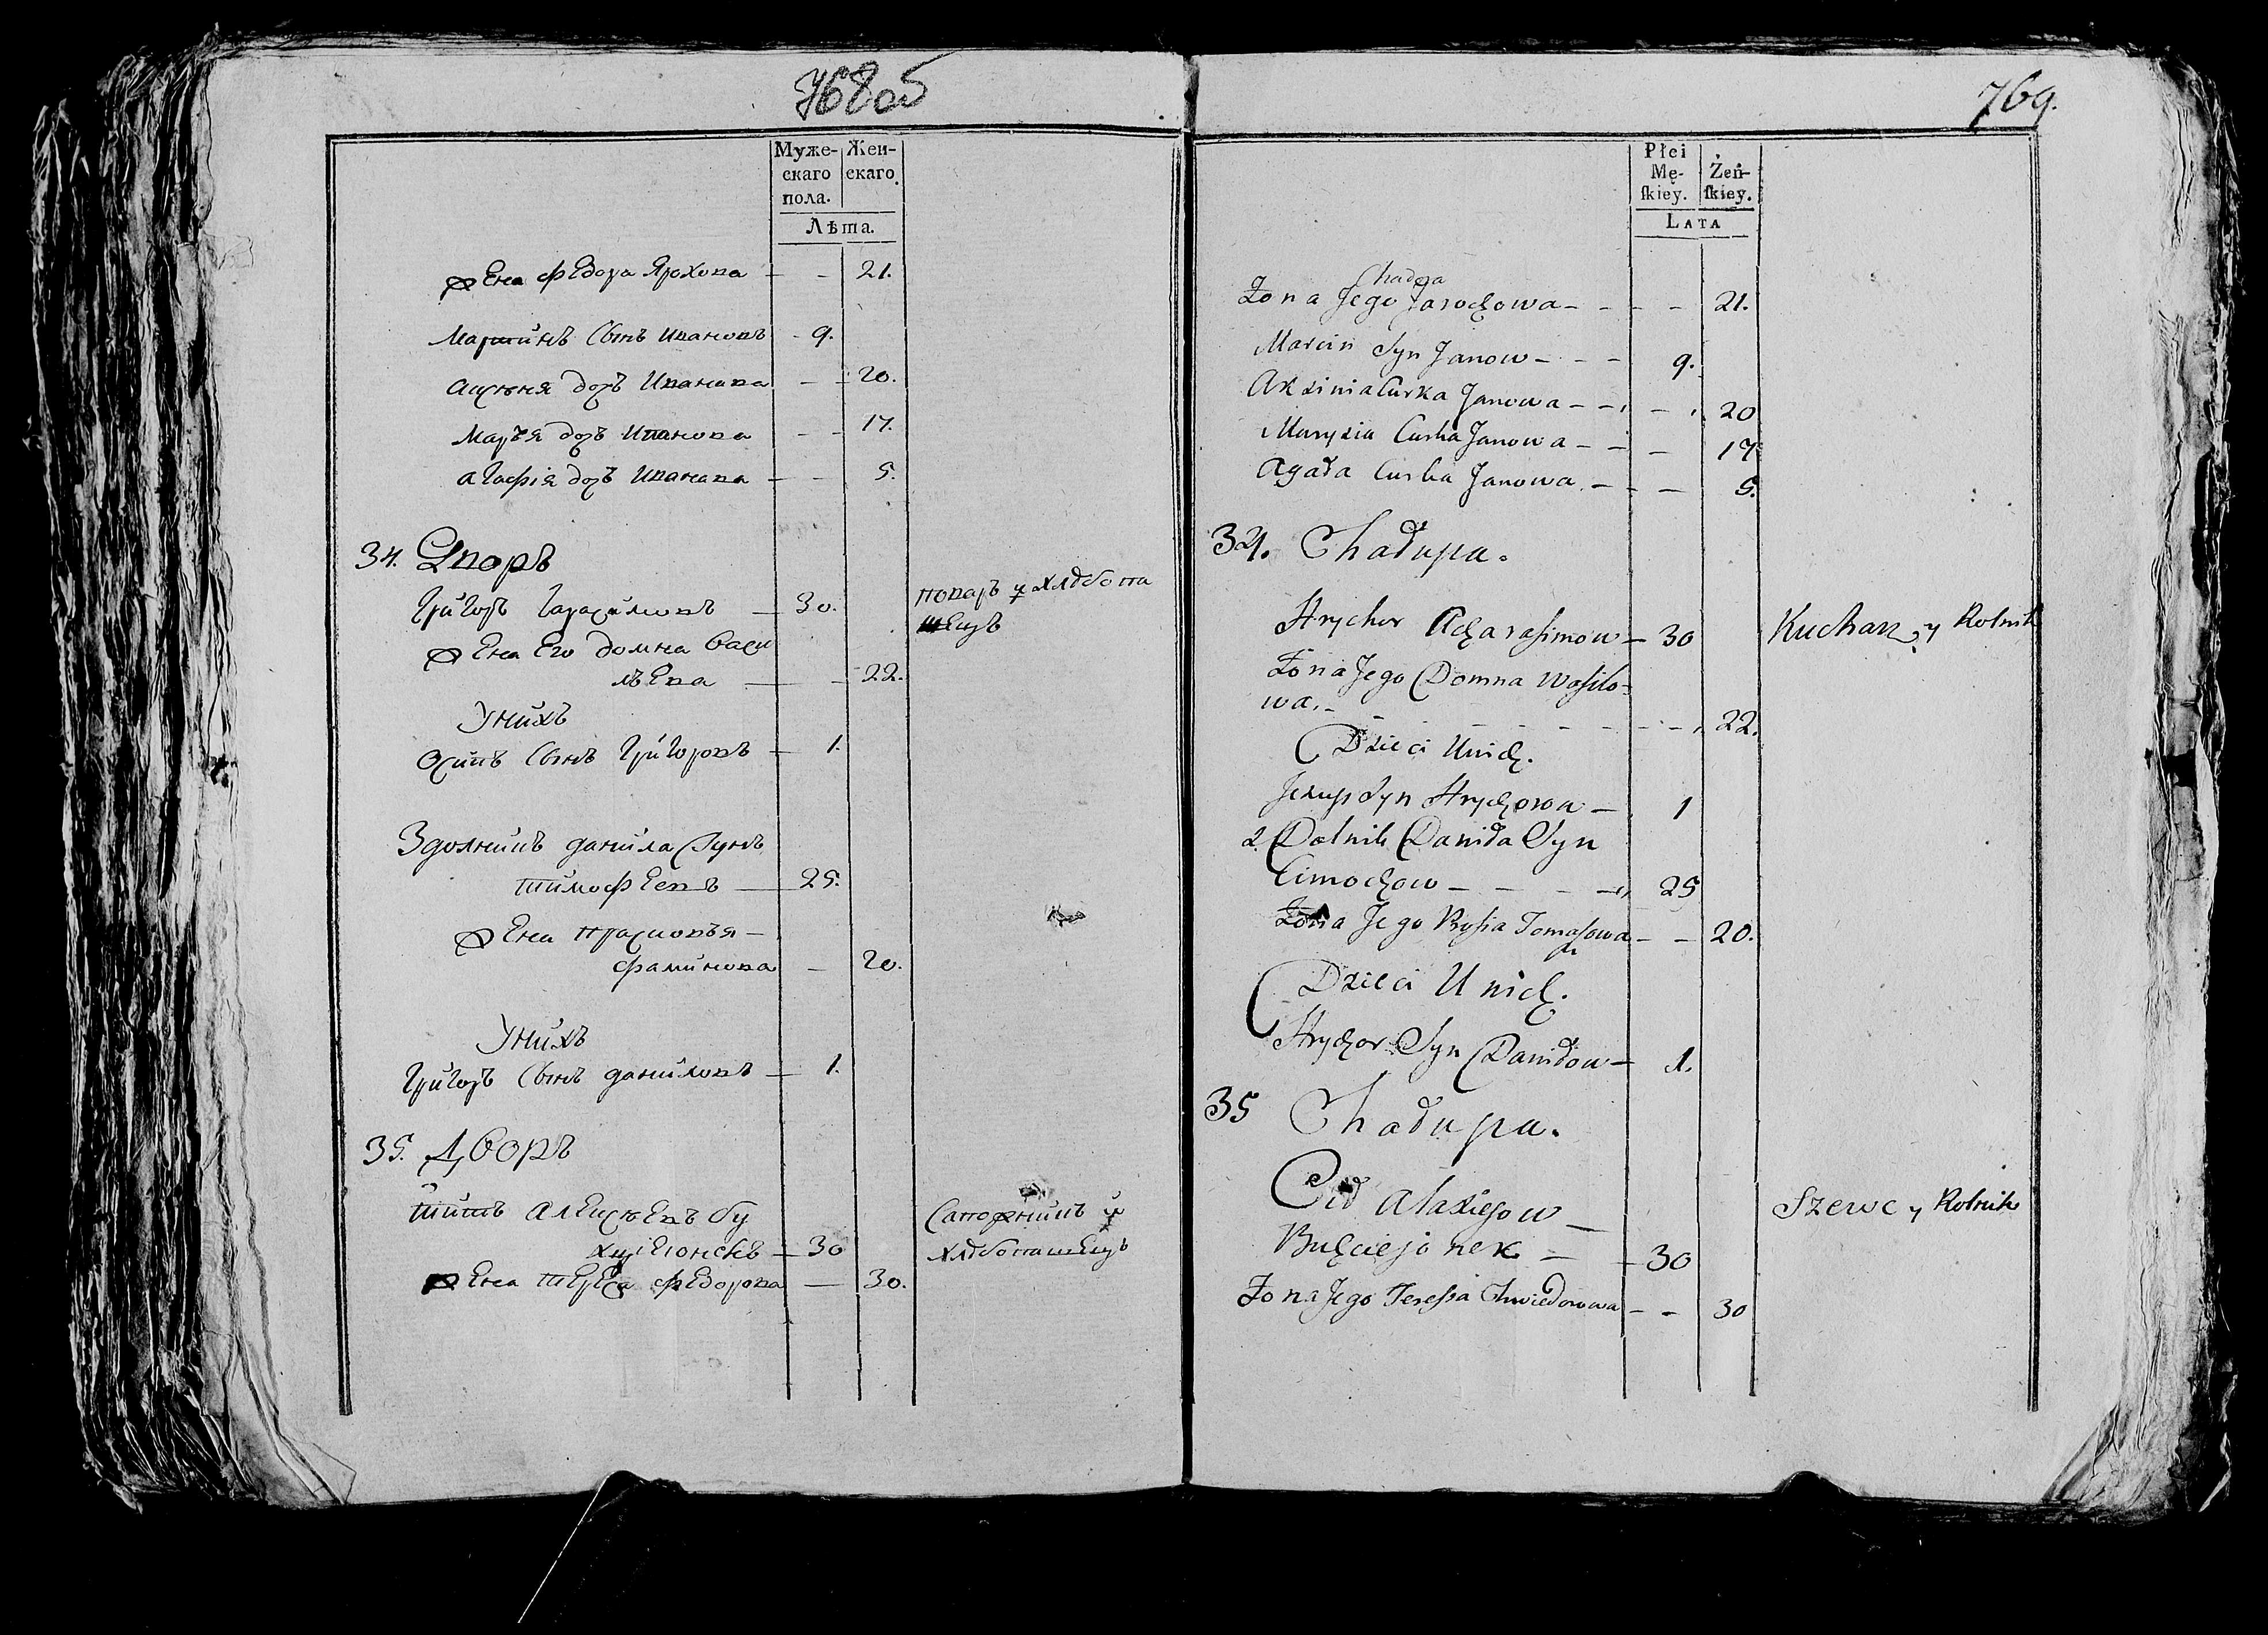 768об
Муже- Жен-
скаго скаго
пола.
Лѣта.
жена федора Ярохова — - 21.
Мартинъ Сынъ Ивановъ - 9.
аксюня дочъ Иванова - - 20.
Марья дочъ Иванова - - 17.
агафія дочъ Иванова - - 5.
34. Дворъ
Григоръ Гарасимовъ — 30. поваръ и хлѣбопа
жена Его домна Васи шецъ
льева — - 22.
Унихъ
Осипъ Сынъ Григоровъ — 1.
Здолникъ данила Сынъ
тимофеевъ — 25.
жена прасковья —
фамінова - 20.
Унихъ
Григоръ Сынъ даниловъ — 1.
35. Дворъ
титъ алексѣевъ бу Сапожникъ и
— 30 хлѣбопашецъ
жена тереса федорова — 30.
769.
Płci
Mę- Żeń-
ſkiey. ſkiey.
LATA
Chadora
Żona Jego Jarochowa - - - - 21.
Marcin Syn Janow - - - 9.
Aksinia Curka Janowa - - - 20
Marysia Curka Janowa - - - 17
Agata Curka Janowa - - - 5.
34. Chałupa.
Hrychor Acharasimow - 30 Kucharz y Rolnik
Żona Jego Domna Wasilo-
wa. - - - - - - - - 22.
Dzieci Unich.
Syn Hrychorowa - 1
2. Dolnik Daniła Syn
Cimochow - - - - 25
Żona Jego Tomaszowa - - 20.
Dzieci Unich.
Hrychor Syn Daniłow - 1.
35 Chałupa.
Cit Alaxiejow - Szewc y Rolnik
Buchciejonek - - 30
Żona Jego Teressa Chwiedorowa - - 30